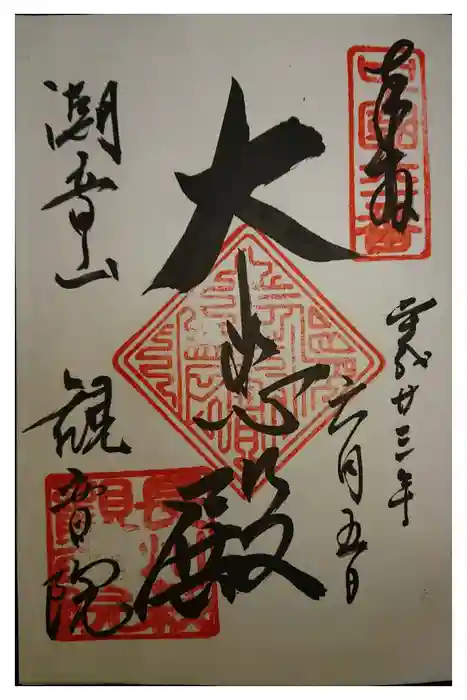 奉拝
平成廿三年
六月五日
大悲殿
潮音山
観音院